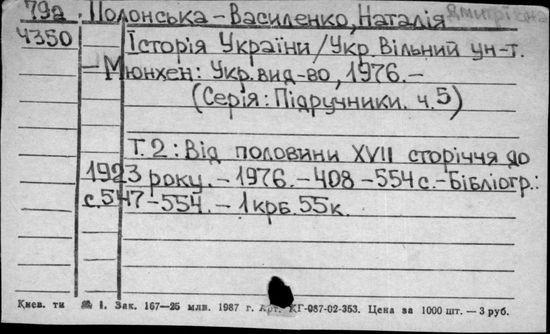 79а. Полонська-Василенко, Наталія Дмитрівна
4350 Історія України/Укр. Вільний ун-т.
– Мюнхен: Укр. вид-во, 1976.–
(Серія: Підручники. ч.5)
Т. 2: Від половини XVII сторіччя до
1923 року. – 1976. – 408 – 554 с. – Бібліогр.:
с. 547 – 554. – 1 крб. 55 к.
Києв. ти № 1. Зак. 167—25 млн. 1987 г. Арт. КГ-087-02-353. Цена за 1000 шт. — 3 руб.